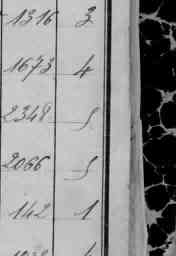 1316 3
1673 4
2348 5
2066 5
142 1